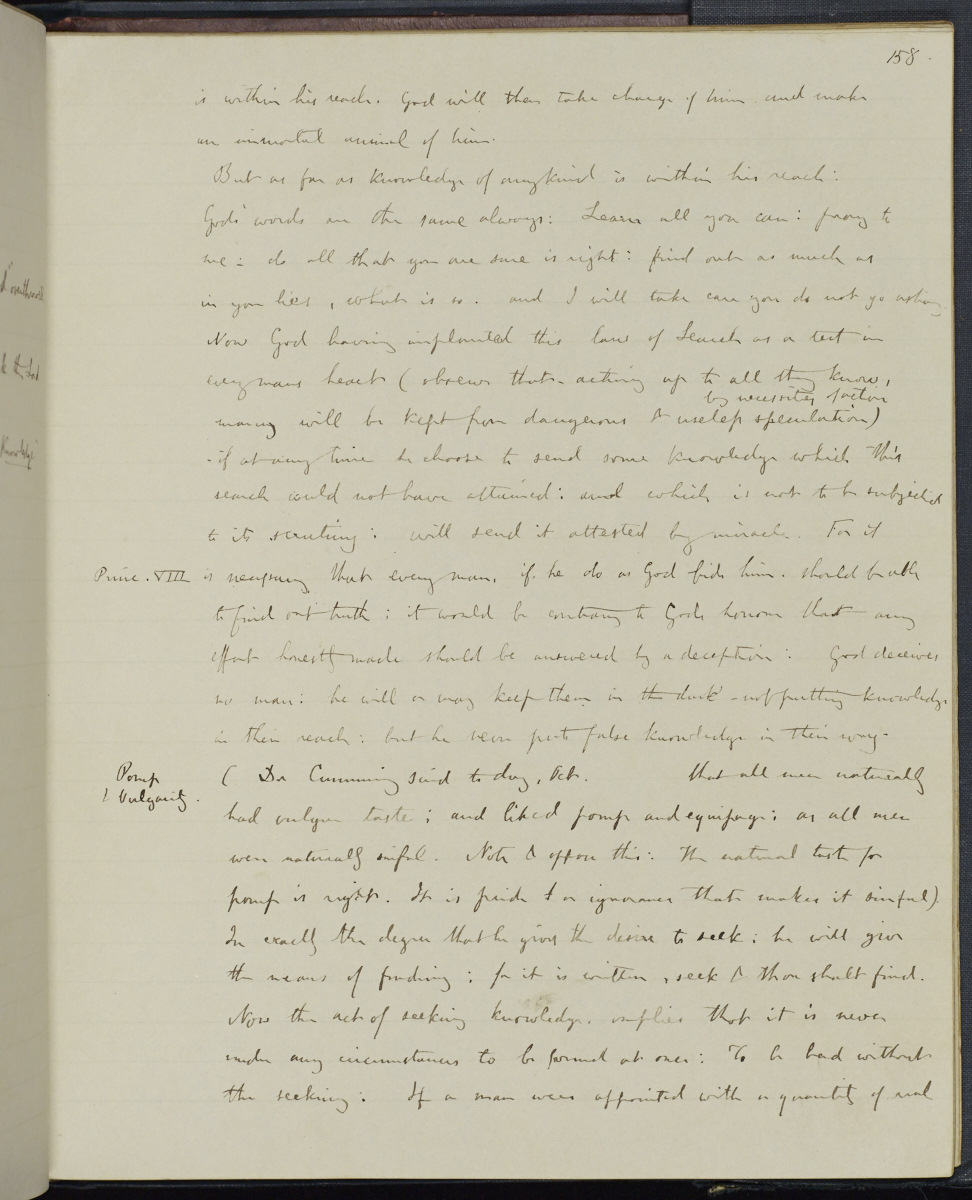 158.
is within his reach. God will then take charge of him and make
an immortal animal of him.
But as far as knowledge of any kind is within his reach:
Gods' words are the same always: Learn all you can: pray to
me: do all that you are sure is right: find out as much as
in you lies, what is so. and I will take care you do not go astray
Now God having implanted this law of Search as a test in
every mans heart (observe that - acting up to all they know,
many will be kept from dangerous & useless speculation)
by necessities of action
- if at any time he choose to send some knowledge which this
search could not have attained: and which is not to be subjected
to its scrutiny: will send it attested by miracle. For it
Princ. VIII is necessary that every man, if he do as God bids him. should be able
to find out truth: it would be contrary to Gods honour that any
effort honestly made should be answered by a deception: God deceives
no man: he will or may keep them in the dark - not putting knowledge
in their reach: but he never puts false knowledge in their way -
Pomp
! Vulgarity.
( Dr Cumming said to day, that all men naturally
had vulgar taste; and liked pomp and equipage: as all men
were naturally sinful. Note & oppose this: The natural taste for
pomp is right. It is pride or ignorance that makes it sinful)
In exactly the degree that he gives the desire to seek: he will give
the means of finding: for it is written, seek & thou shalt find.
Now the act of seeking knowledge. implies that it is never
under any circumstances to be found at once: To be had without
the seeking: If a man were appointed with a quantity of real